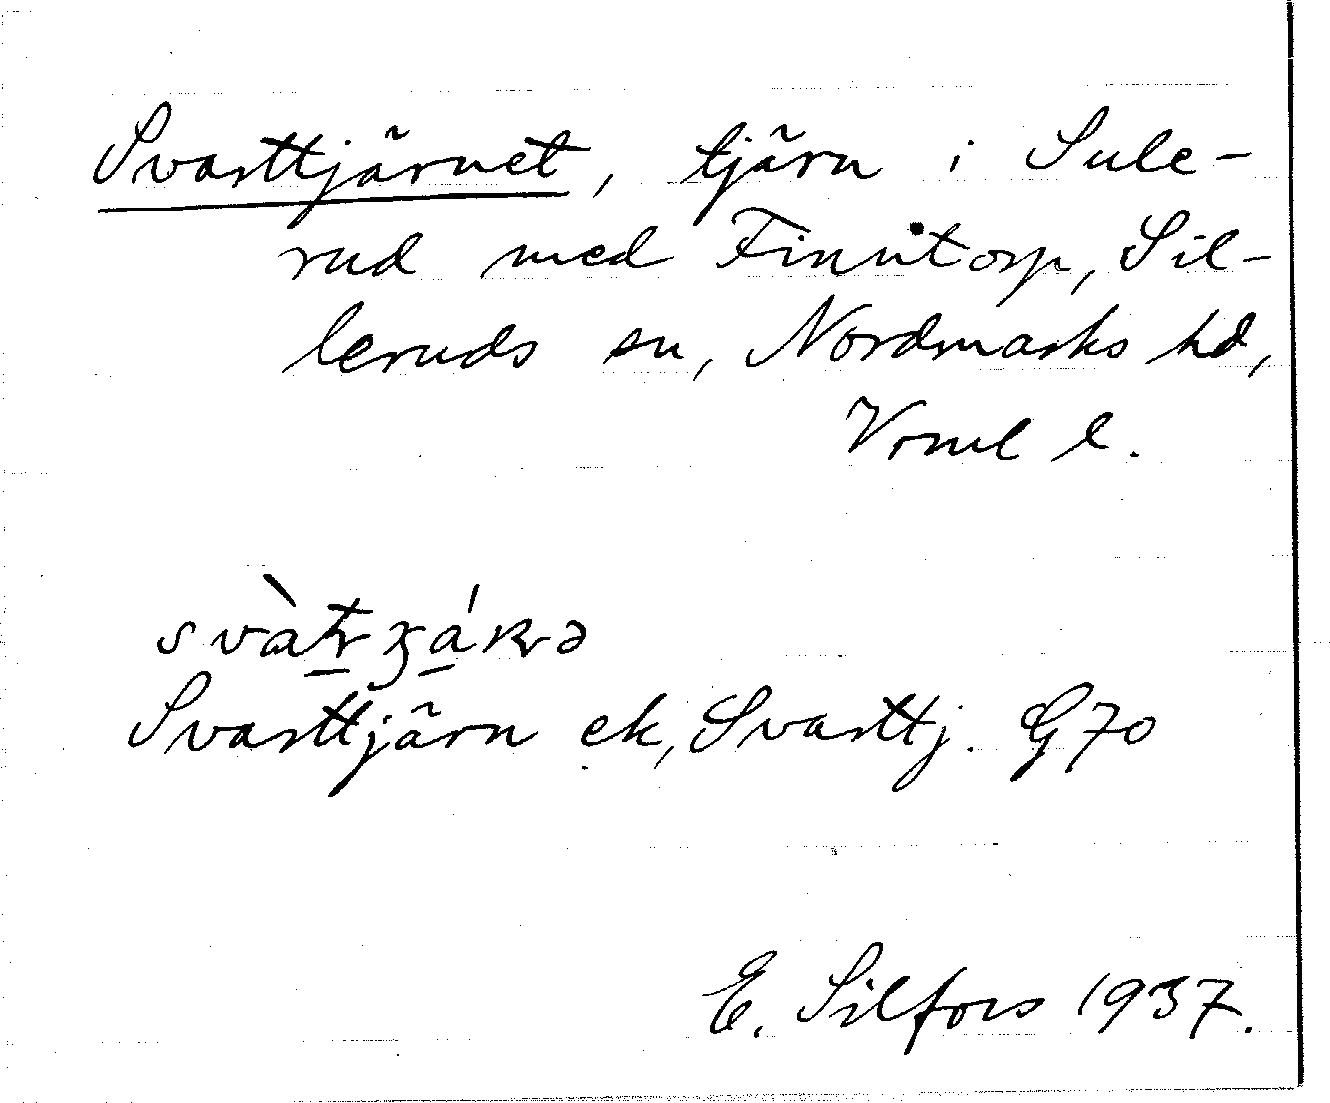 Svarttjärnet, tjärn i Sule-
rud med Finntorp, Sil-
leruds sn, Nordmarks hd,
Vrml l.
Svarttjärn ek, Svarttj. G70
E. Silfors 1937.